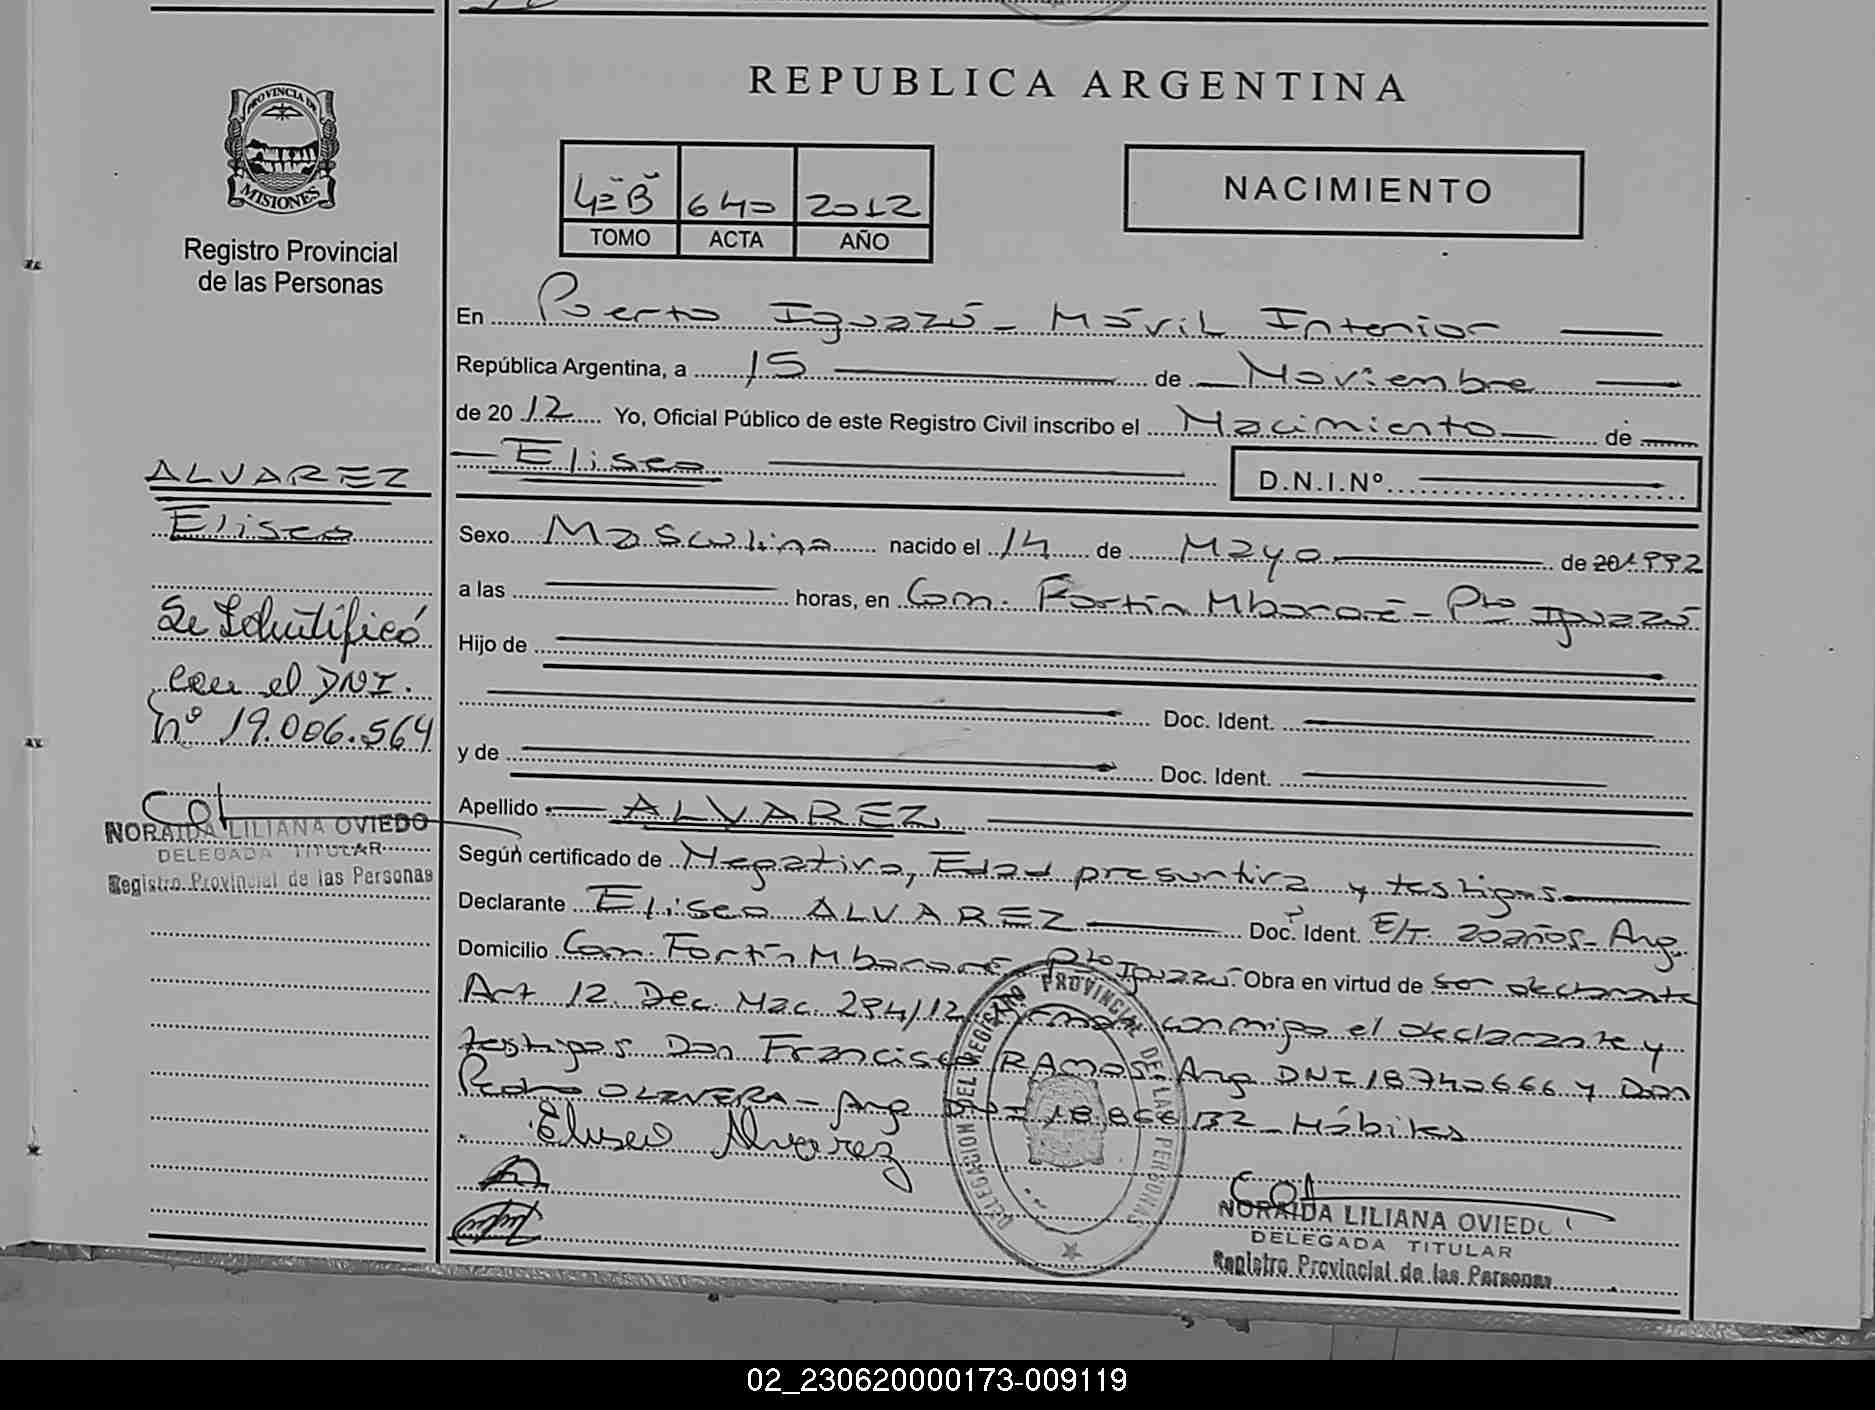 REPUBLICA ARGENTINA
PROVINCIA DE
MISIONES
Registro Provincial
de las Personas
4º "B" 640 2012
TOMO ACTA AÑO
NACIMIENTO
En Puerto Iguazú - Móvil Interior
República Argentina, a 15 de Noviembre
de 2012 Yo, Oficial Público de este Registro Civil inscribo el Nacimiento de
Eliseo D.N.I.Nº
Sexo Masculino nacido el 14 de Mayo de 201992
a las horas, en Com. Fortín Mbororé - Pto Iguazú
Hijo de
Doc. Ident.
y de Doc. Ident.
Apellido ALVAREZ
Según certificado de Negativa, Edad presuntiva y testigos
Declarante Eliseo ALVAREZ Doc. Ident. E/T. 20 años - Arg.
Domicilio Com. Fortín Mbororé Pto Iguazú Obra en virtud de ser declarante
Art 12 Dec. Nac. 294/12 Firman conmigo el declarante y
testigos Don Francisco RAMOS - Arg DNI 18740666 y Don
Pedro OLIVERA - Arg DNI 18.866132 - Hábiles
Eliseo Alvarez
DELEGACION DEL REGISTRO PROVINCIAL DE LAS PERSONAS
NORAIDA LILIANA OVIEDO
DELEGADA TITULAR
Registro Provincial de las Personas
ALVAREZ
Eliseo
Se Identificó
con el DNI.
nº 19.006.564
NORAIDA LILIANA OVIEDO
DELEGADA TITULAR
Registro Provincial de las Personas
02_230620000173-009119